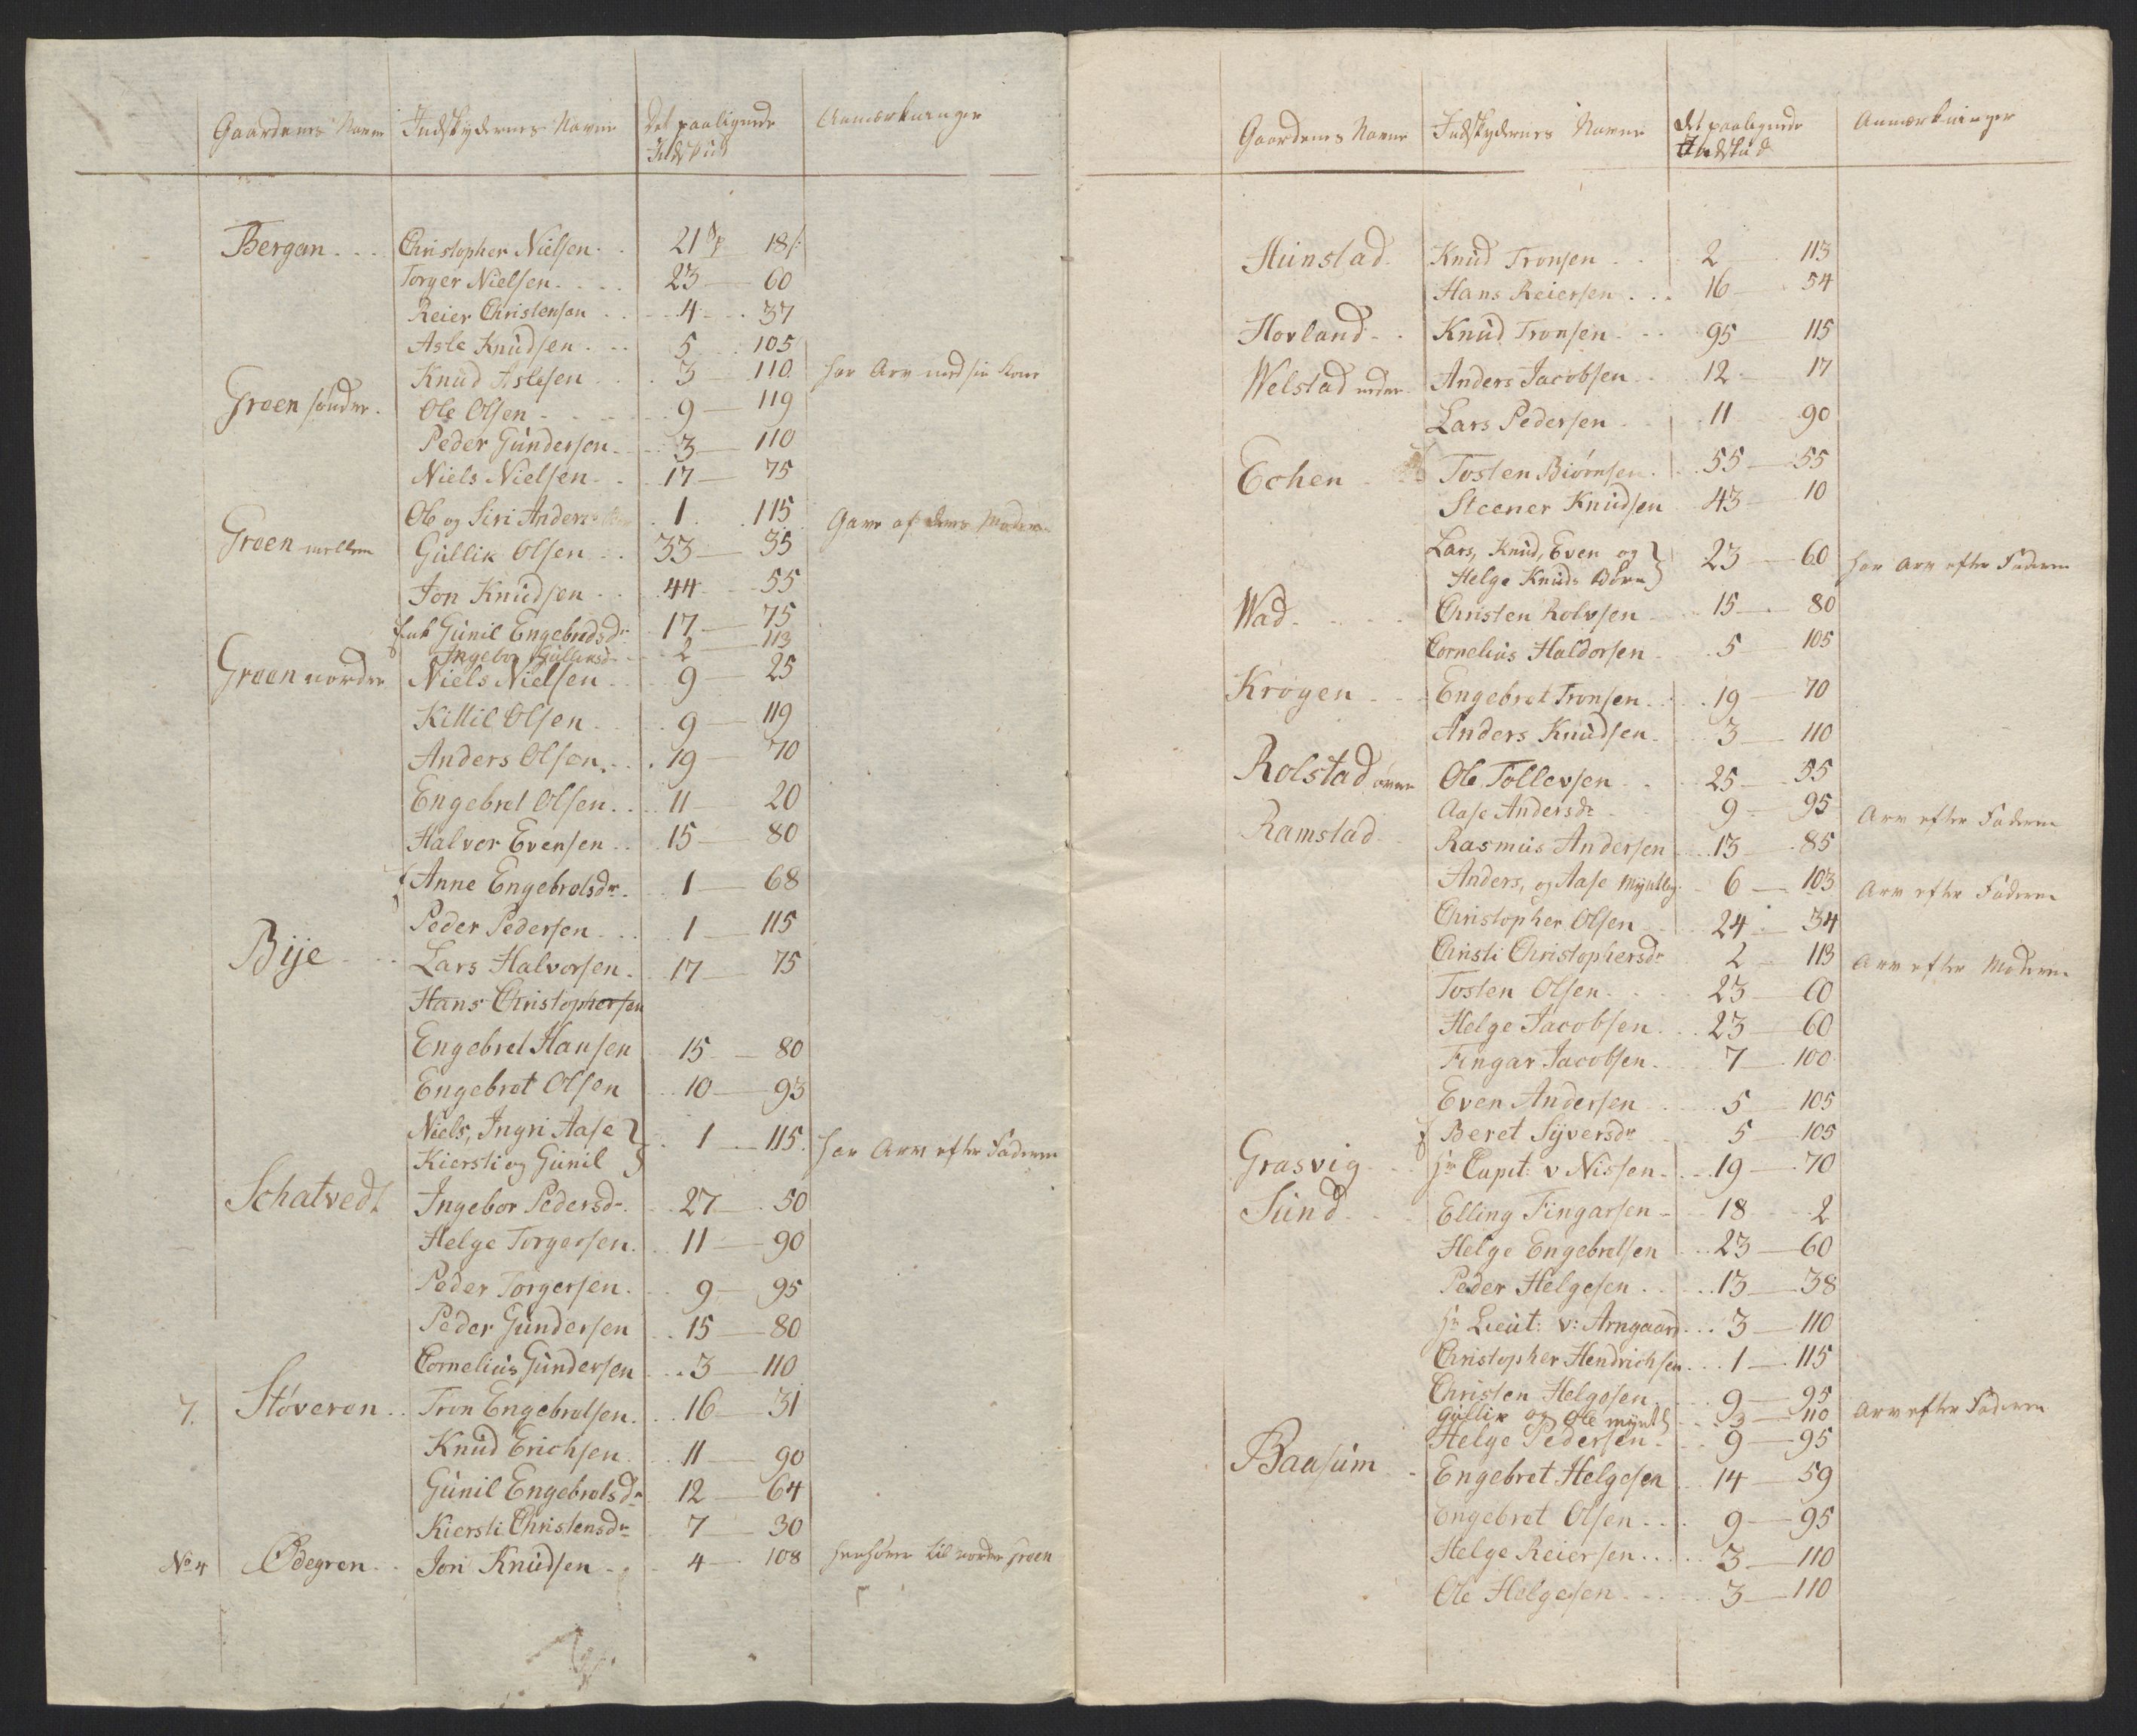 Gaardenes Navne Indskydernes Navne Det paalignede Anmærkninger
Indskud
Bergan Christopher Nielsen 21 Sp 18 s:
Torger Nielsen 23 60
Reier Christensen 4 37
Asle Knudsen 5 105
Knud Aslesen 3 110 har Arv med sin Kone
Groen sønder Ole Olsen 9 119
Peder Gundersen 3 110
Niels Nielsen 17 75
Ole og Siri Anders 1 115 Gave af deres Moder
Groen mellem Gullik Olsen 33 35
Jon Knudsen 44 55
Enk Gunil Engebredsdr 17 75
Ingebor Gulliksd 2 113
Groen nordre Niels Nielsen 9 25
Killil Olsen 9 119
Anders Olsen 19 70
Engebret Olsen 11 20
Halvor Evensen 15 80
Anne Engebretsdr 1 68
Peder Pedersen 1 115
Bije Lars Halvorsen 17 75
Hans Christophersen
Engebret Hansen 15 80
Engebret Olsen 10 93
Niels, Ingri Aase
Kiersti og Gunil 1 115 har Arv efter Faderen
Schatvedt Ingebor Pedersdr 27 50
Helge Torgersen 11 90
Peder Torgersen 9 95
Peder Gundersen 15 80
Cornelius Gundersen 3 110
7. Støveren Tron Engebretsen 16 31
Knud Erichsen 11 90
Gunil Engebretsdr 12 64
Kiersti Christensdr 7 30
No 4 Ødegren Jon Knudsen 4 108 henhører til nordre Groen
Gaardenes Navne Indskydernes Navne det paalignede Anmærkninger
Indskud
Hunstad Knud Tronsen 2 113
Hans Reiersen 16 54
Hovland Knud Tronsen 95 115
Welstad nedre Anders Jacobsen 12 17
Lars Pedersen 11 90
Echen Tosten Biørnsen 55 55
Steener Knudsen 43 10
Lars, Knud, Even og
Helge Knuds Børn 23 60 har Arv efter Faderen
Wad Christen Rolvsen 15 80
Cornelius Haldorsen 5 105
Krogen Engebret Tronsen 19 70
Anders Knudsen 3 110
Rolstad øvre Ole Tollevsen 25 55
Aase Andersdr 9 95 Arv efter Faderen
Ramstad Rasmus Andersen 13 85
Anders, og Aase Myntlig 6 103 Arv efter Faderen
Christopher Olsen 24 34
Christi Christophersdr 2 113 Arv efter Moderen
Tosten Olsen 23 60
Helge Jacobsen 23 60
Fingar Jacobsen 7 100
Even Andersen 5 105
Beret Syversdr 5 105
Grasvig Hr Capit: v Nissen 19 70
Sund Elling Fingarsen 18 2
Helge Engebretsen 23 60
Peder Helgesen 13 38
Hr Lieut: v: Arngaard 3 110
Christopher Hendrichsen 1 115
Christen Helgesen 9 95
Gullik og Ole myntl 3 110 Arv efter Faderen
Helge Pedersen 9 95
Baasum Engebret Helgesen 14 59
Engebret Olsen 9 95
Helge Reiersen 3 110
Ole Helgesen 3 110